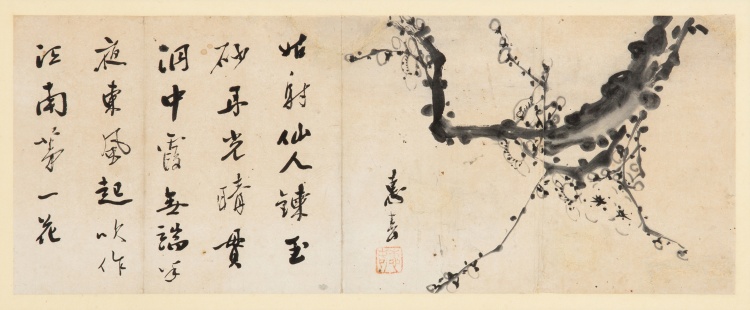 姑射仙人鍊玉
砂丹光晴貫
洞中霞無端半
夜東風起吹作
江南第一花